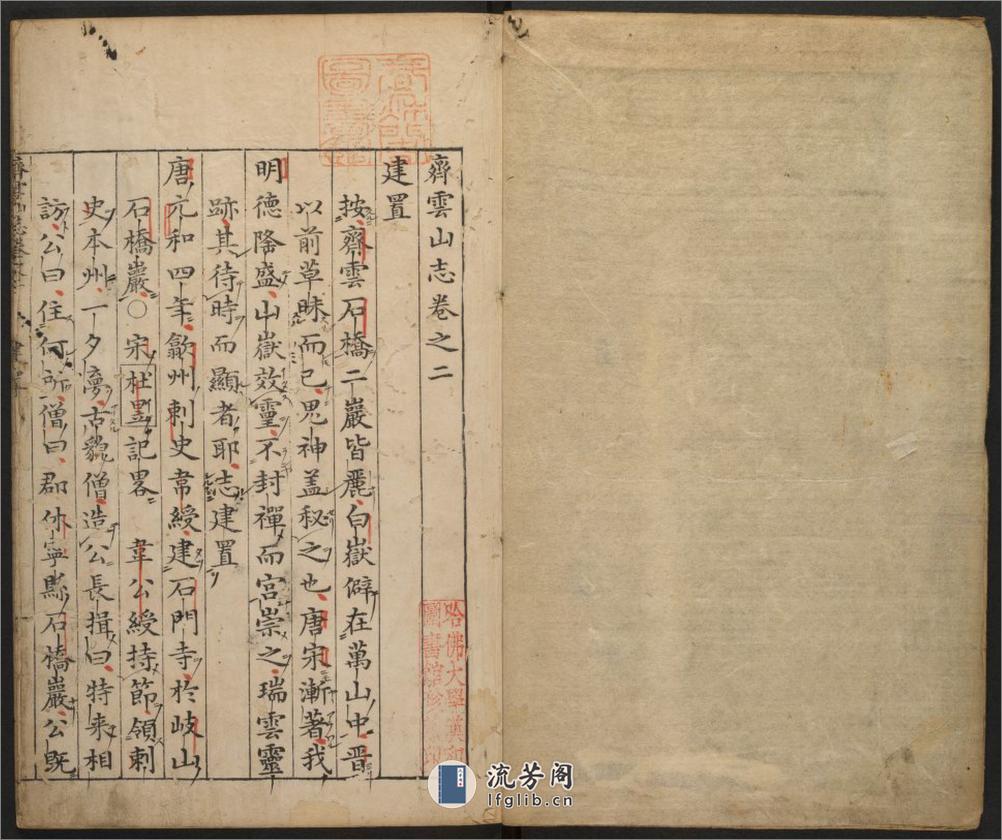 齊雲山志卷之二
建置
按齊雲石橋二巖皆麗白嶽僻在萬山中晋
以前草昧而已鬼神盖秘之也唐宋漸著我
明德隆盛山嶽效靈不封禪而宮崇之瑞雲靈
跡其待時而顯者耶志建置
唐元和四年歙州刺史韋綬建石門寺於岐山
石橋巖○宋杜
記畧 韋公綬持節領刺
史本州一夕夢古貌僧造公長揖曰特来相
訪公曰住何所僧曰郡休寧縣石橋巖公既
哈佛大學漢和
圖書館
流芳阁
lfglib.cn